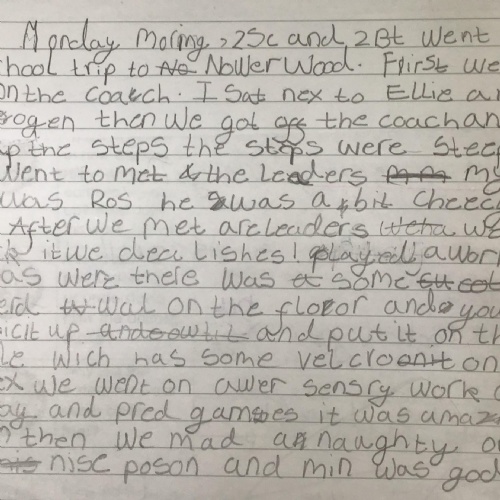 Monday Moring, 2Sc and 2Bt went
chool trip to No Nower Wood. Flirst we
on the coatch. I Sat nex to Ellie an
rogen then we got off the coach an
up the steps the steps were steep
went to met & the Leaders my
was Ros he was a bit cheec
After we met are Leaders we
it we decu lishes! played a work
as were there was some
erd wal on the floror and you
picit up and put it on th
le wich has some velcro on
ex we went on awer sensry work
ay and pred games it was amaz
n then we mad a naughty o
nisc poson and min was god